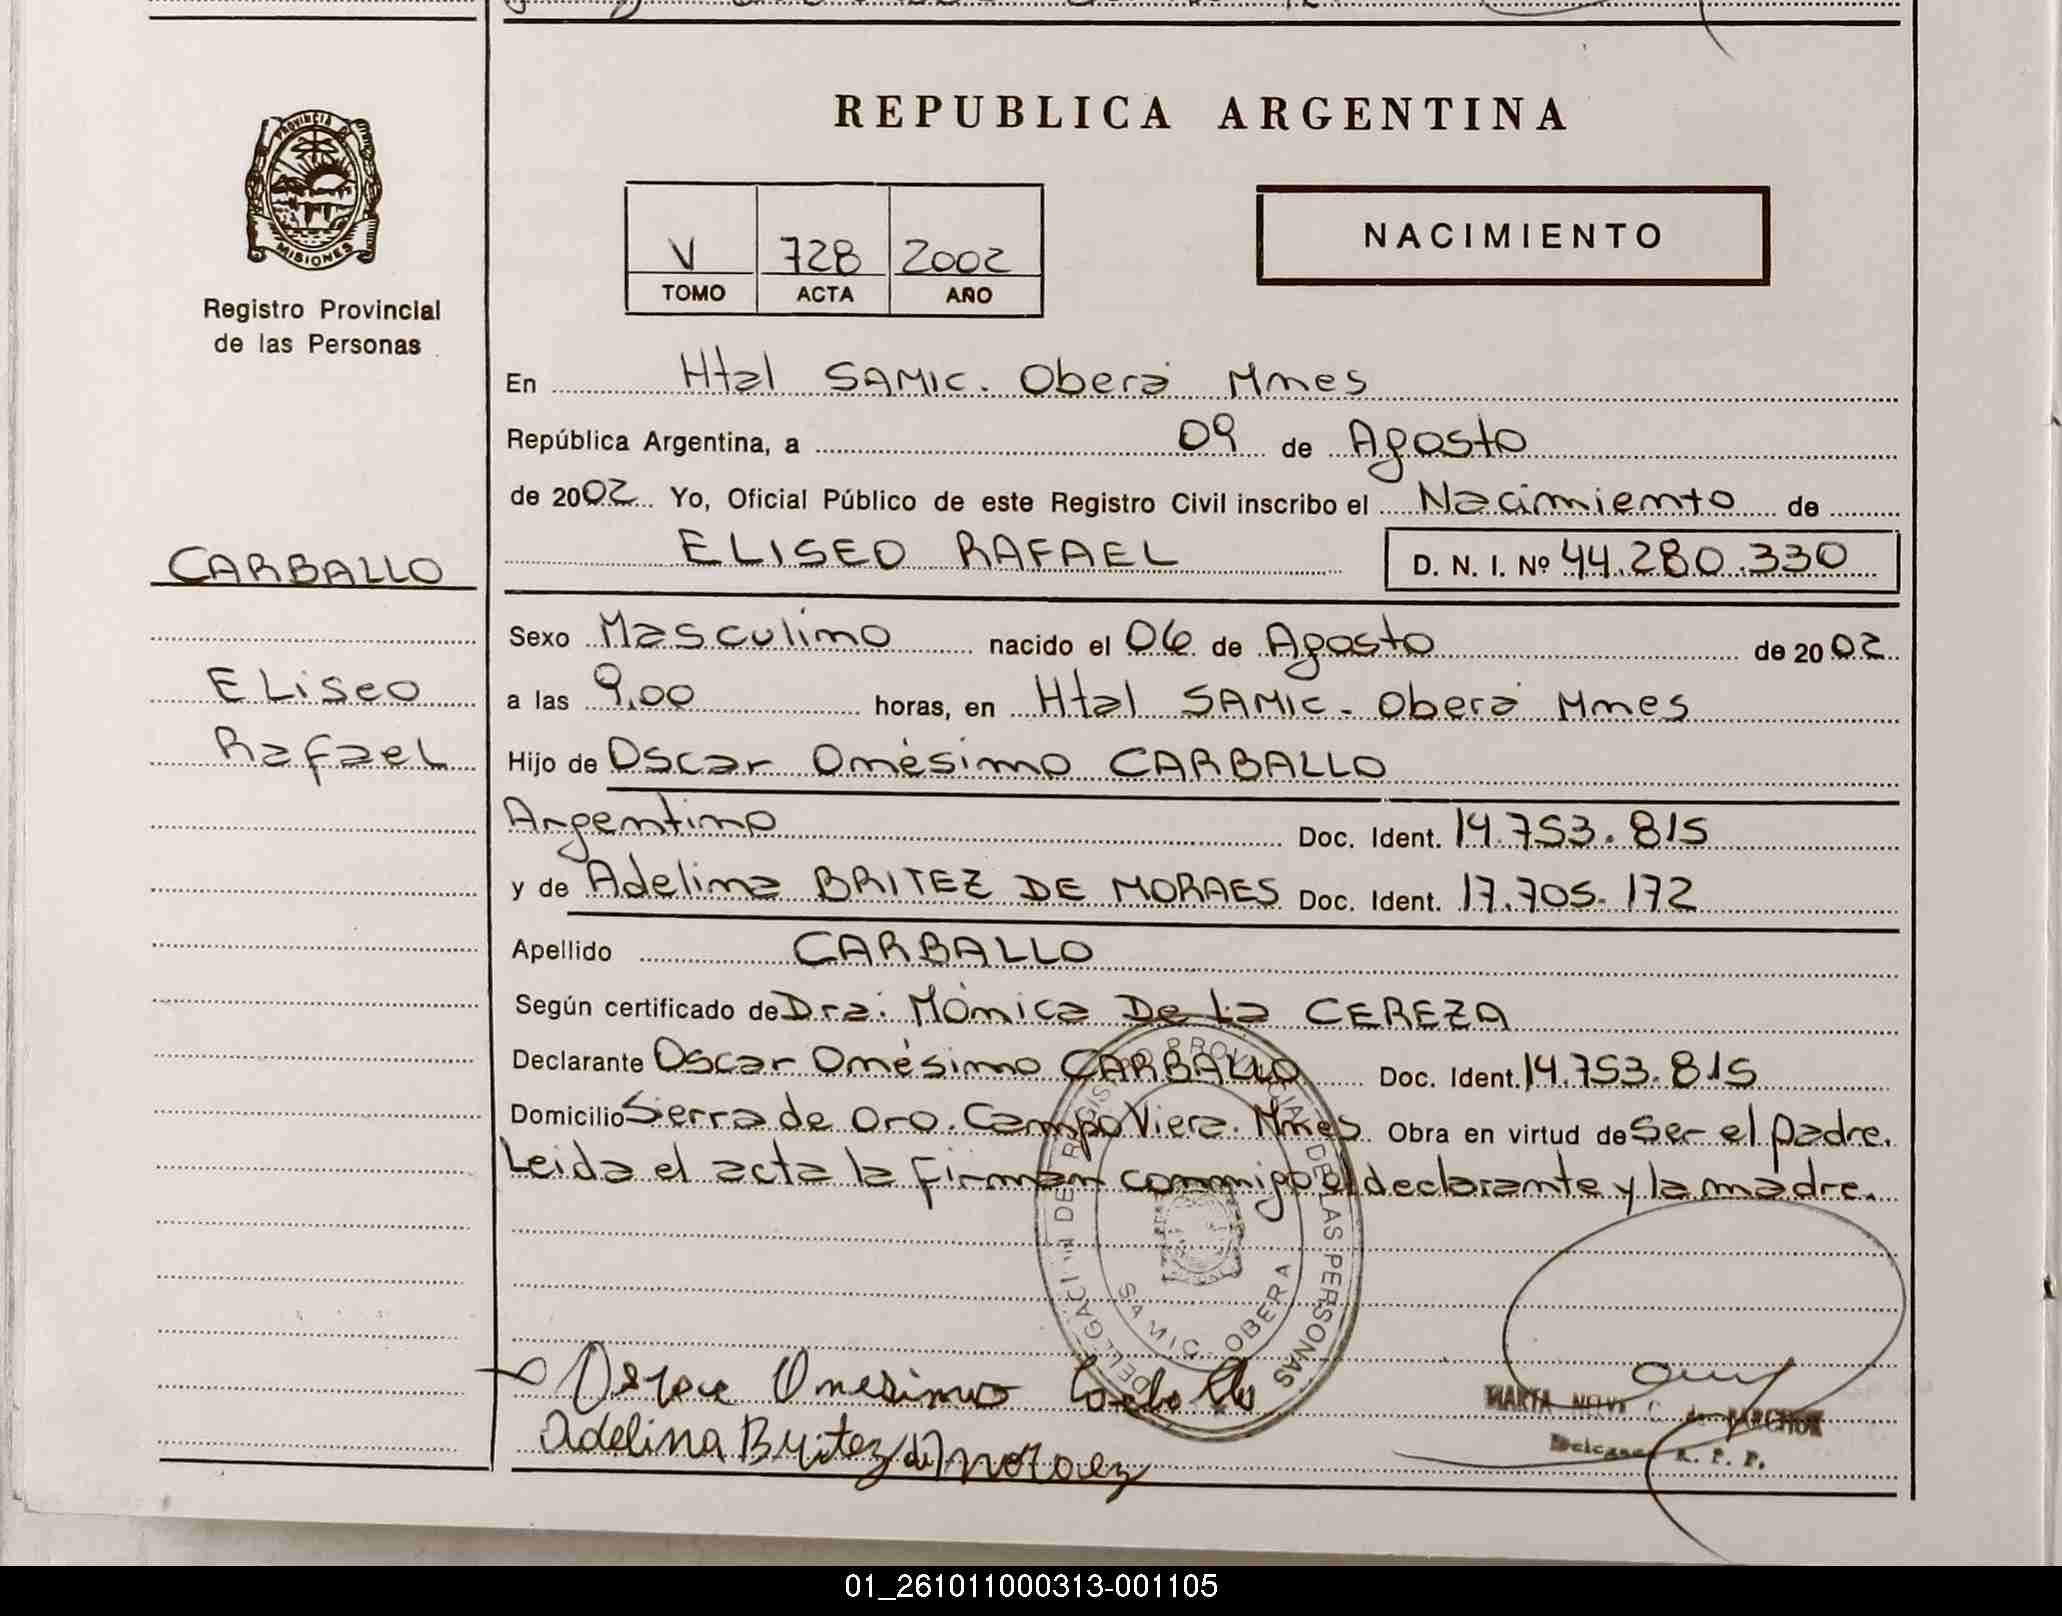 REPUBLICA ARGENTINA
PROVINCIA DE
MISIONES
Registro Provincial
de las Personas
V 728 2002
TOMO ACTA AÑO
NACIMIENTO
En Htal SAMIC. Oberá Mnes
República Argentina, a 09 de Agosto
de 2002 Yo, Oficial Público de este Registro Civil inscribo el Nacimiento de
ELISEO RAFAEL D. N. I. Nº 44.280.330
CARBALLO
Eliseo
Rafael
Sexo Masculino nacido el 06 de Agosto de 2002
a las 9,00 horas, en Htal SAMIC. Oberá Mnes
Hijo de Oscar Onésimo CARBALLO
Argentino Doc. Ident. 14.753.815
y de Adelina BRITEZ DE MORAES Doc. Ident. 17.705.172
Apellido CARBALLO
Según certificado de Dra. Mónica De La CEREZA
Declarante Oscar Onésimo CARBALLO Doc. Ident. 14.753.815
Domicilio Sierra de Oro. Campo Viera. Mnes Obra en virtud de Ser el padre.
Leida el acta la firman conmigo el declarante y la madre.
DELEGACION DEL REGISTRO PROVINCIAL DE LAS PERSONAS
SAMIC OBERA
Onesimo Carballo
Adelina Britez de Moraez
MARTA
R. P. P.
01_261011000313-001105